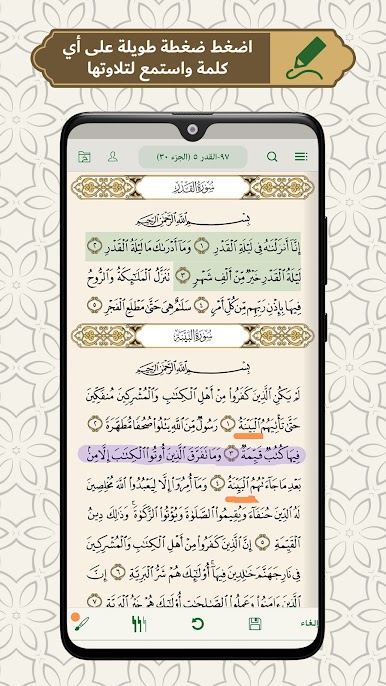 اضغط ضغطة طويلة على أي
كلمة واستمع لتلاوتها
٩٧-القدر ٥ (الجزء ٣٠)
سُورَةُ القَدْرِ
بِسْمِ ٱللَّهِ ٱلرَّحْمَٰنِ ٱلرَّحِيمِ
إِنَّآ أَنزَلْنَٰهُ فِى لَيْلَةِ ٱلْقَدْرِ ١ وَمَآ أَدْرَىٰكَ مَا لَيْلَةُ ٱلْقَدْرِ ٢
لَيْلَةُ ٱلْقَدْرِ خَيْرٌ مِّنْ أَلْفِ شَهْرٍ ٣ تَنَزَّلُ ٱلْمَلَٰٓئِكَةُ وَٱلرُّوحُ
فِيهَا بِإِذْنِ رَبِّهِم مِّن كُلِّ أَمْرٍ ٤ سَلَٰمٌ هِىَ حَتَّىٰ مَطْلَعِ ٱلْفَجْرِ ٥
سُورَةُ البَيِّنَةِ
بِسْمِ ٱللَّهِ ٱلرَّحْمَٰنِ ٱلرَّحِيمِ
لَمْ يَكُنِ ٱلَّذِينَ كَفَرُوا۟ مِنْ أَهْلِ ٱلْكِتَٰبِ وَٱلْمُشْرِكِينَ مُنفَكِّينَ
حَتَّىٰ تَأْتِيَهُمُ ٱلْبَيِّنَةُ ١ رَسُولٌ مِّنَ ٱللَّهِ يَتْلُوا۟ صُحُفًا مُّطَهَّرَةً ٢
فِيهَا كُتُبٌ قَيِّمَةٌ ٣ وَمَا تَفَرَّقَ ٱلَّذِينَ أُوتُوا۟ ٱلْكِتَٰبَ إِلَّا مِنۢ
بَعْدِ مَا جَآءَتْهُمُ ٱلْبَيِّنَةُ ٤ وَمَآ أُمِرُوٓا۟ إِلَّا لِيَعْبُدُوا۟ ٱللَّهَ مُخْلِصِينَ
لَهُ ٱلدِّينَ حُنَفَآءَ وَيُقِيمُوا۟ ٱلصَّلَوٰةَ وَيُؤْتُوا۟ ٱلزَّكَوٰةَ وَذَٰلِكَ دِينُ
ٱلْقَيِّمَةِ ٥ إِنَّ ٱلَّذِينَ كَفَرُوا۟ مِنْ أَهْلِ ٱلْكِتَٰبِ وَٱلْمُشْرِكِينَ
فِى نَارِ جَهَنَّمَ خَٰلِدِينَ فِيهَآ أُو۟لَٰٓئِكَ هُمْ شَرُّ ٱلْبَرِيَّةِ ٦ إِنَّ
ٱلَّذِينَ ءَامَنُوا۟ وَعَمِلُوا۟ ٱلصَّٰلِحَٰتِ أُو۟لَٰٓئِكَ هُمْ خَيْرُ ٱلْبَرِيَّةِ ٧
الغاء